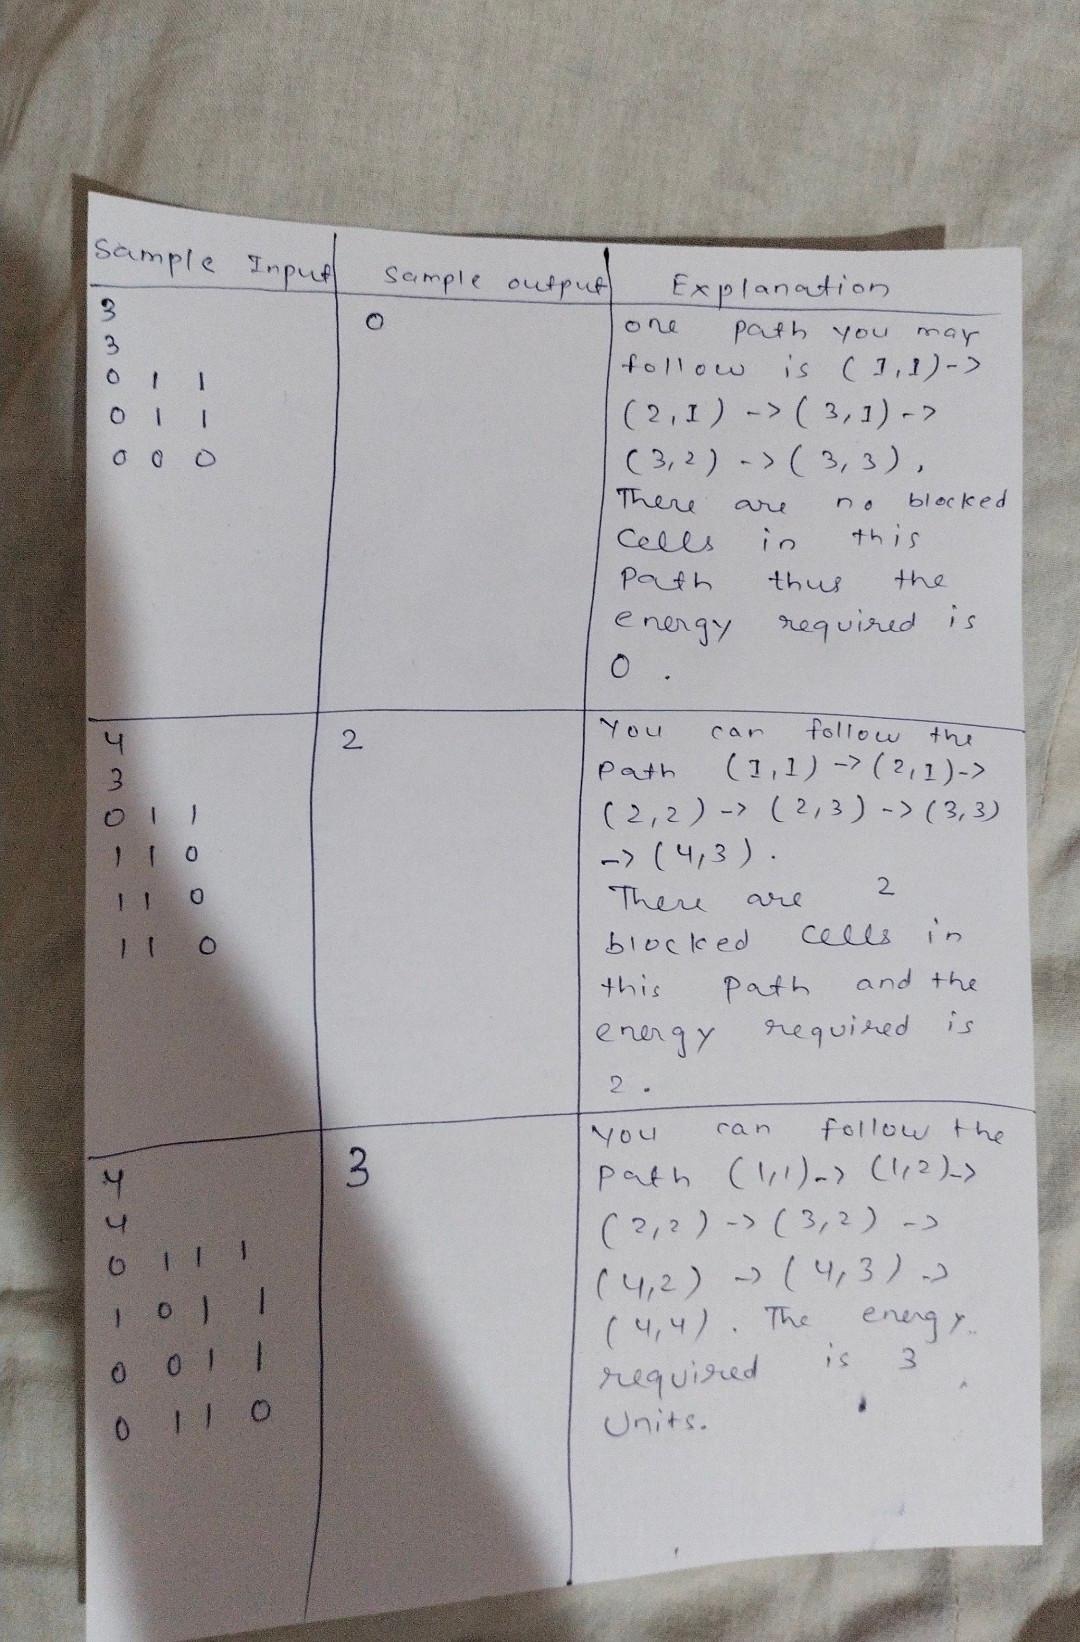 Sample Input
Sample output
Explanation
3
3
0 1 1
0 1 1
0 0 0
0
one path you may
follow is (1,1)->
(2,1) -> (3,1) ->
(3,2) -> (3,3),
There are no blocked
Cells in this
Path thus the
energy required is
0.
4
3
0 1 1
1 1 0
1 1 0
1 1 0
2
You can follow the
Path (1,1) -> (2,1)->
(2,2) -> (2,3) -> (3,3)
-> (4,3).
There are 2
blocked cells in
this Path and the
energy required is
2.
4
4
0 1 1 1
1 0 1 1
0 0 1 1
0 1 1 0
3
You can follow the
Path (1,1)-> (1,2)->
(2,2) -> (3,2) ->
(4,2) -> (4,3) ->
(4,4). The energy
required is 3
Units.